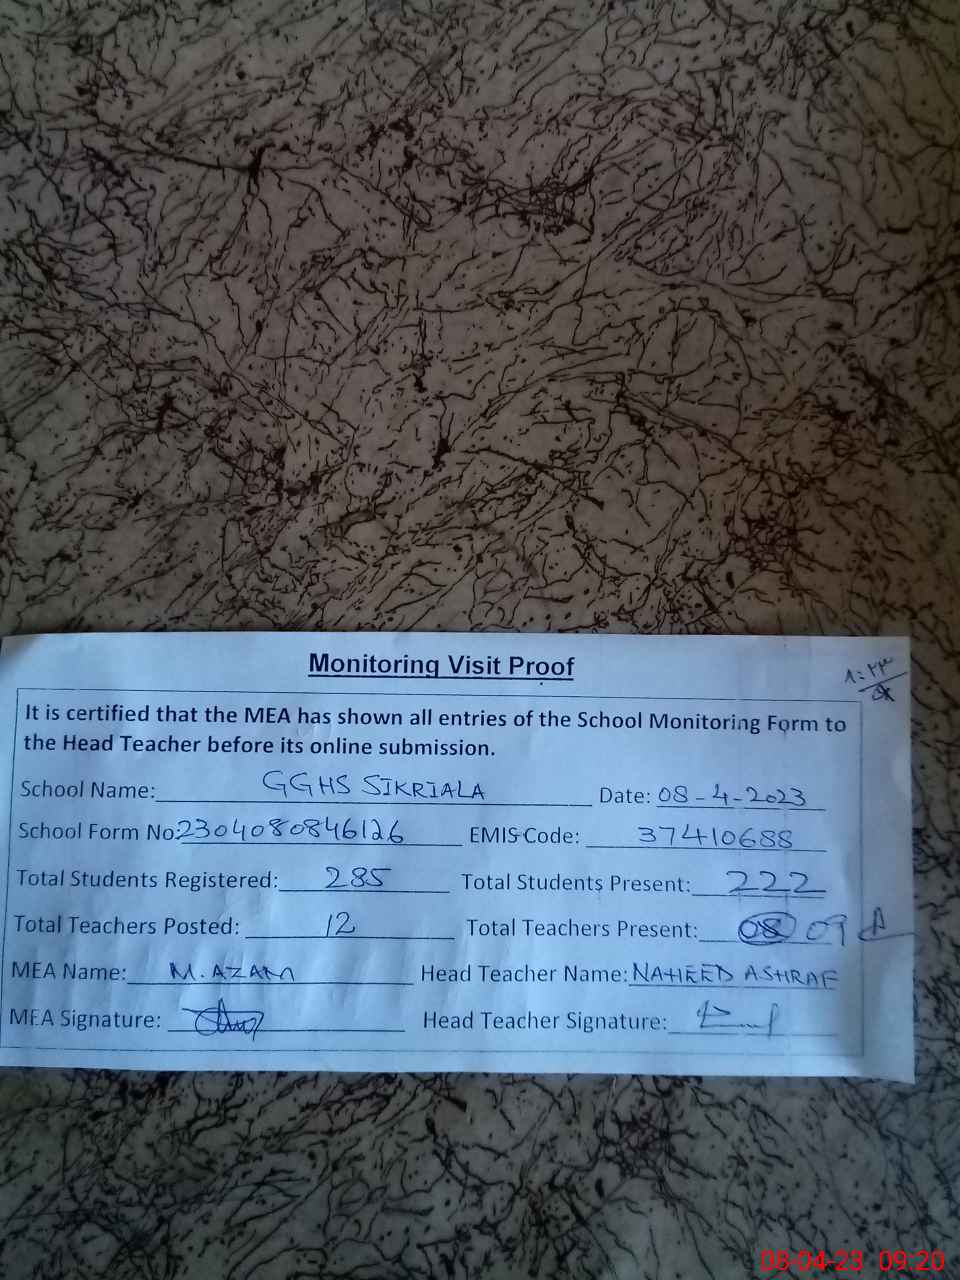 Monitoring Visit Proof
۸:۲۳
It is certified that the MEA has shown all entries of the School Monitoring Form to
the Head Teacher before its online submission.
School Name: GGHS SIKRIALA Date: 08-4-2023
School Form No: 2304080846126 EMIS Code: 37410688
Total Students Registered: 285 Total Students Present: 222
Total Teachers Posted: 12 Total Teachers Present: 08 09
MEA Name: M. AZAM Head Teacher Name: NAHEED ASHRAF
MEA Signature: Head Teacher Signature:
08-04-23 09:20